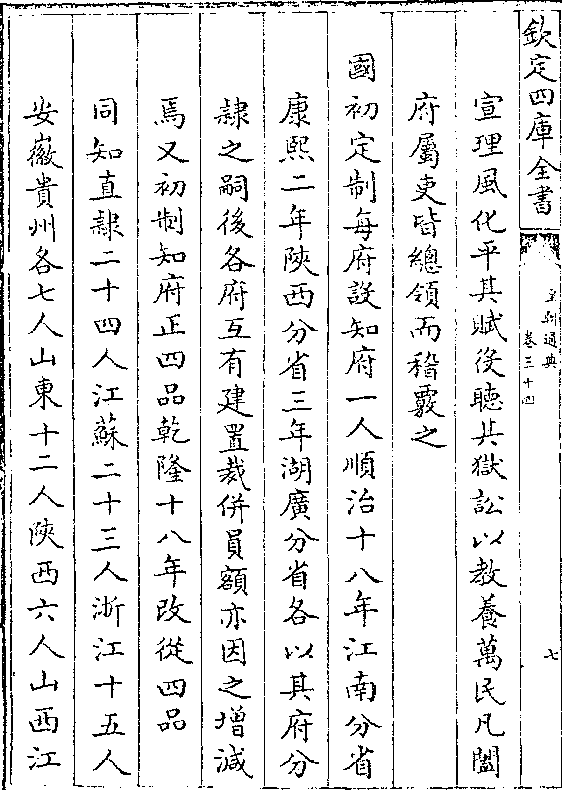 欽定四庫全書
皇朝通典
卷三十四
七
宣理風化平其賦役聽其獄訟以教養萬民凡闔
府屬吏皆總領而稽覈之
國初定制每府設知府一人順治十八年江南分省
康熙二年陝西分省三年湖廣分省各以其府分
隸之嗣後各府互有建置裁併員額亦因之增減
焉又初制知府正四品乾隆十八年改從四品
同知直隸二十四人江蘇二十三人浙江十五人
安徽貴州各七人山東十二人陝西六人山西江